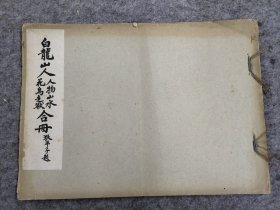 白龍山人人物山水花鳥走獸合冊